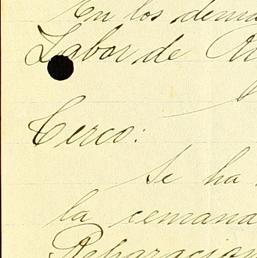 En los dema
Labor de
Cerco:
Se ha
la cemana
Reparacion